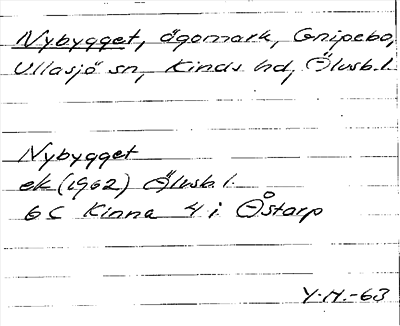 Nybygget, ägomark, Gnipebo,
Ullasjö sn, Kinds hd, Älvsb.l.
Nybygget
ek (1962) Älvsb.l.
6C Kinna 4 i Åstarp
Y.H.-63